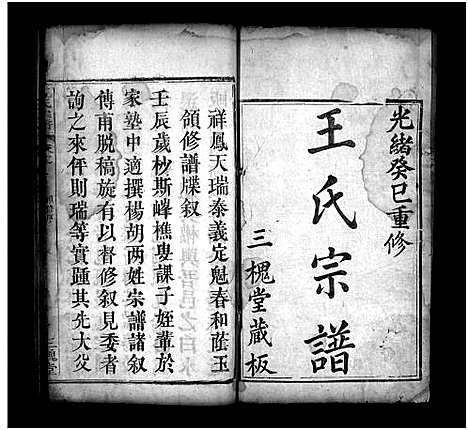 光緒癸巳重修
王氏宗譜
三槐堂蔵板
祥鳳天瑞泰義定魁春和蔭玉
領修譜牒叙
壬辰歲杪斯峰樵叟課子姪輩於
家塾中適撰楊胡兩姓宗譜諸叙
傳甫脱稿族有以督修叙見委者
詢之來伻則瑞等實踵其先大父